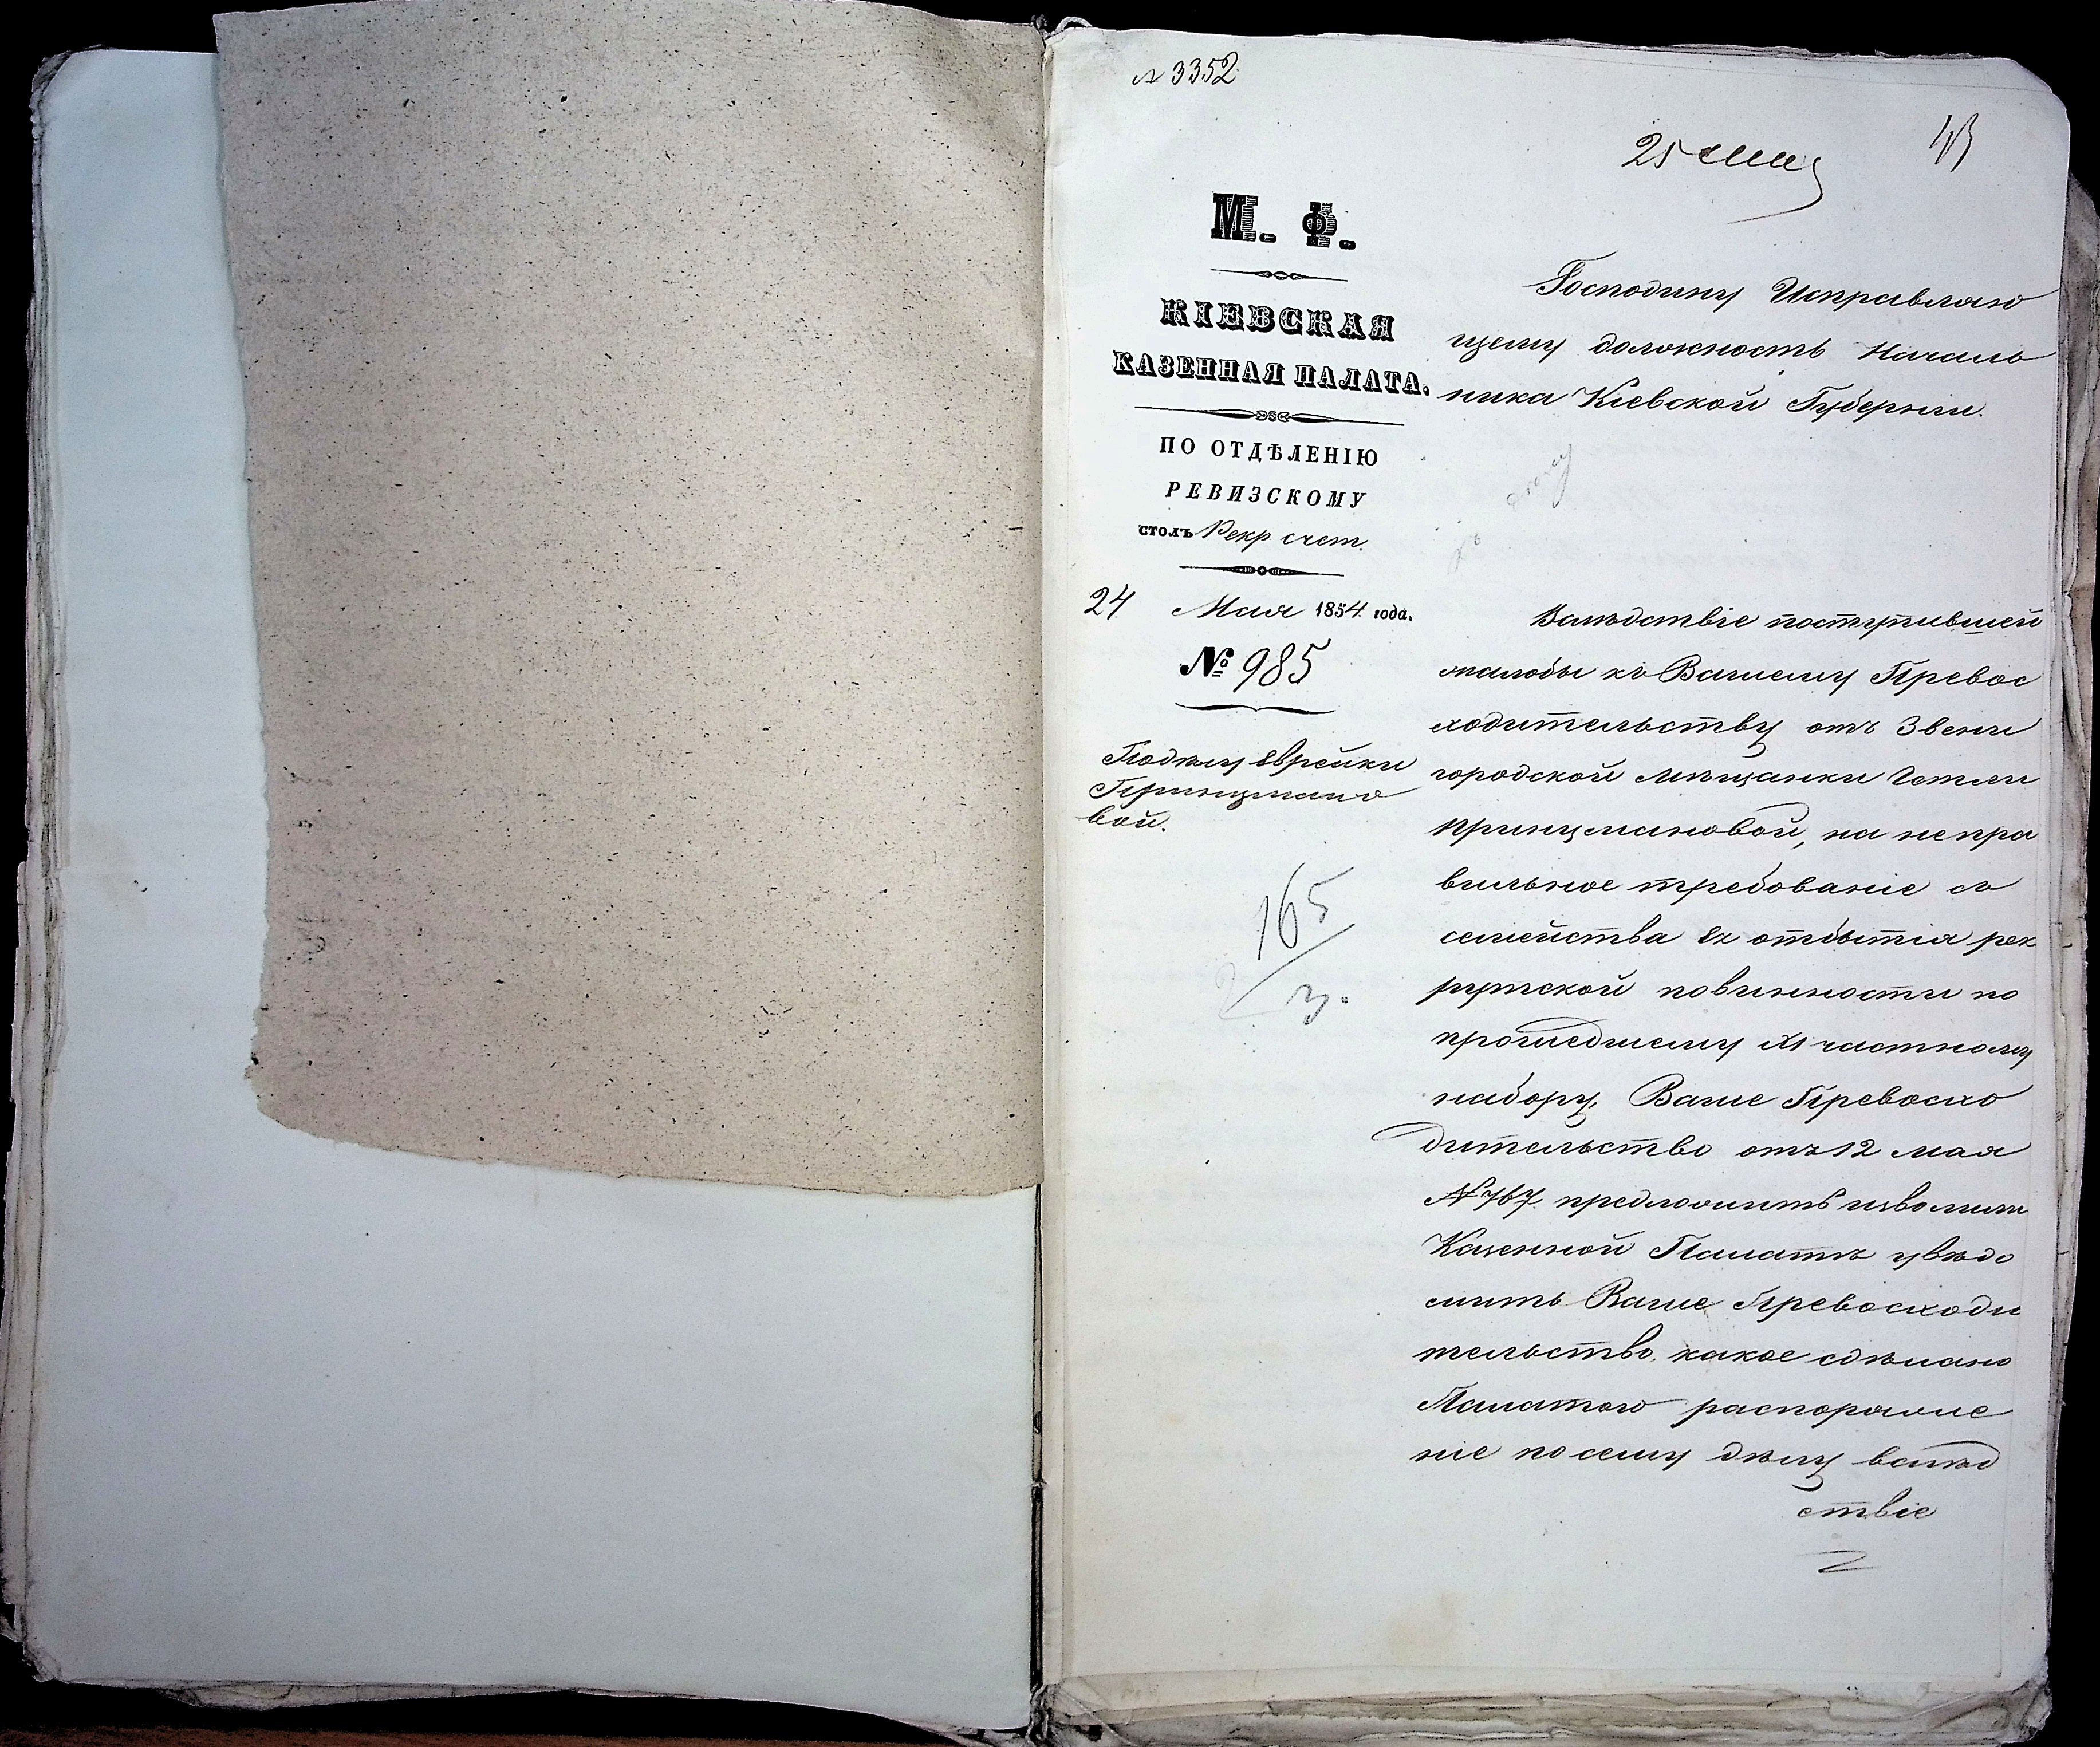 № 3352
25 Мая
М. Ф.
КІЕВСКАЯ
КАЗЕННАЯ ПАЛАТА.
ПО ОТДѢЛЕНІЮ
РЕВИЗСКОМУ
столъ Рекр. счет.
24 Мая 1854 года.
№ 985
По дѣлу Еврейки
Принцмано
вой.
165
З.
Господину Исправляю
щему должность Началь
ника Кіевской Губерніи.
къ дѣлу
Вслѣдствіе поступившей
жалобы къ Вашему Превос
ходительству отъ Звени
городской мѣщанки Гетли
Принцмановой, на непра
вильное требованіе съ
семейства Ея отбытія рек
рутской повинности по
прошедшему XI частному
набору, Ваше Превосхо
дительство отъ 12 мая
№ 767 предложить изволили
Казенной Палатѣ увѣдо
мить Ваше Превосходи
тельство, какое сдѣлано
Палатою распоряже
ніе по сему дѣлу вслѣд
ствіе